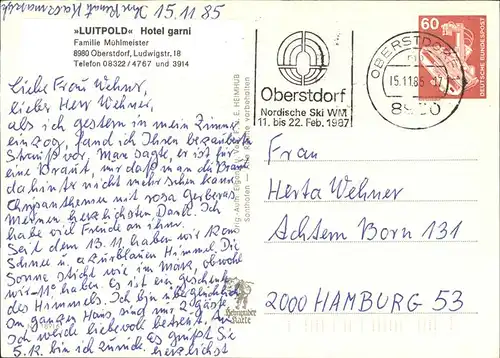 Ihr Knut 15.11.85
»LUITPOLD« Hotel garni
Familie Mühlmeister
8980 Oberstdorf, Ludwigstr. 18
Telefon 08322 / 4767 und 3914
Liebe Frau Wehner,
lieber Herr Wehner,
als ich gestern in mein Zimmer
einzog, fand ich Ihren bezaubernden
Strauß vor. Man sagte, er ist für
eine Braut, nur daß man die Braut
dahinter nicht mehr sehen kann.
Chrysanthemen mit rosa Gerbera.
Meinen herzlichsten Dank. Ich
habe viel Freude an ihnen.
Seit dem 13.11 haben wir 12 cm
Schnee u. azurblauen Himmel. Die
Sonne sticht wie im März, obwohl
wir -11° haben. Es ist ein Geschenk
des Himmels. Ich bin überglücklich.
Im ganzen Haus sind nur 2 Gäste.
Ich werde liebevoll betreut. Am
5.12. bin ich zurück. Es grüßt Sie
herzlichst
HEIMHUB
Sonthofen — Alle Rechte vorbehalten
Heimhuber
Karte
Oberstdorf
Nordische Ski WM
11. bis 22. Feb. 1987
OBERSTDORF
15.11.85
8980
60
DEUTSCHE BUNDESPOST
Frau
Herta Wehner
Achtern Born 131
2000 HAMBURG 53